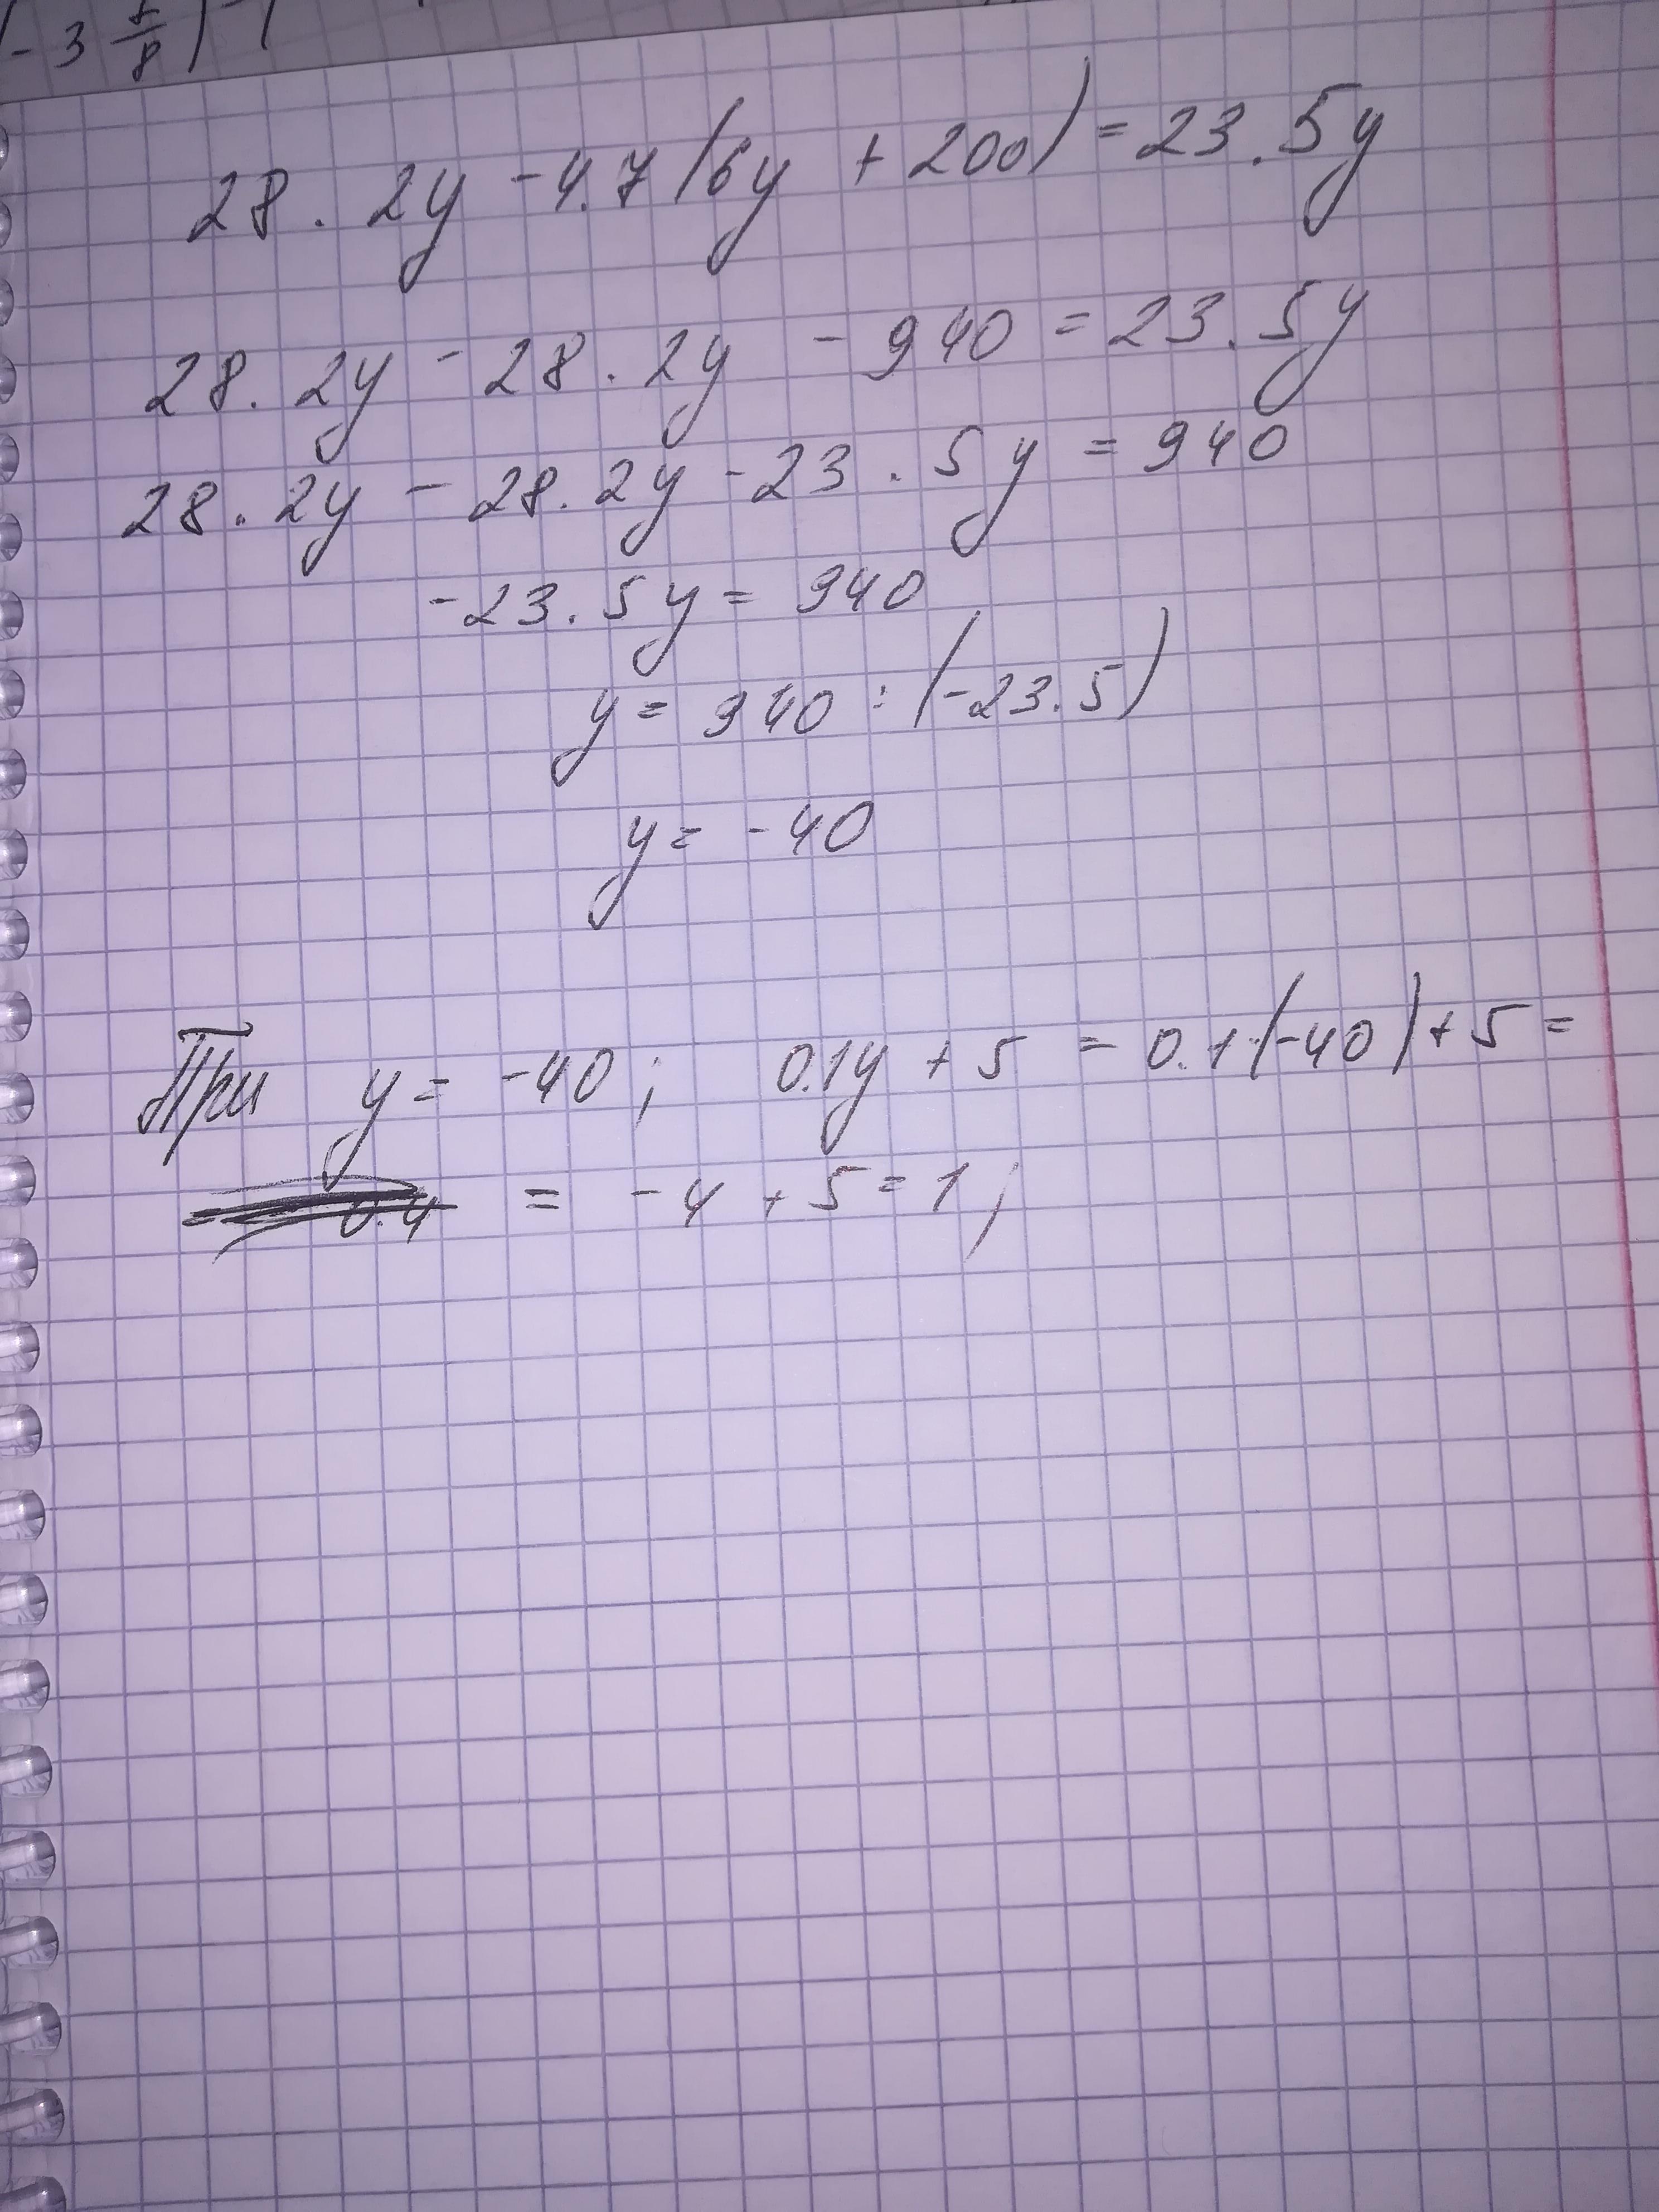 -3 /8)
28.2y -4.7(6y + 200) = 23.5y
28.2y - 28.2y - 940 = 23.5y
28.2y - 28.2y - 23.5y = 940
-23.5y = 940
y = 940 : (-23.5)
y = -40
При y = -40; 0.1y + 5 = 0.1·(-40) + 5 =
= -4 + 5 = 1;